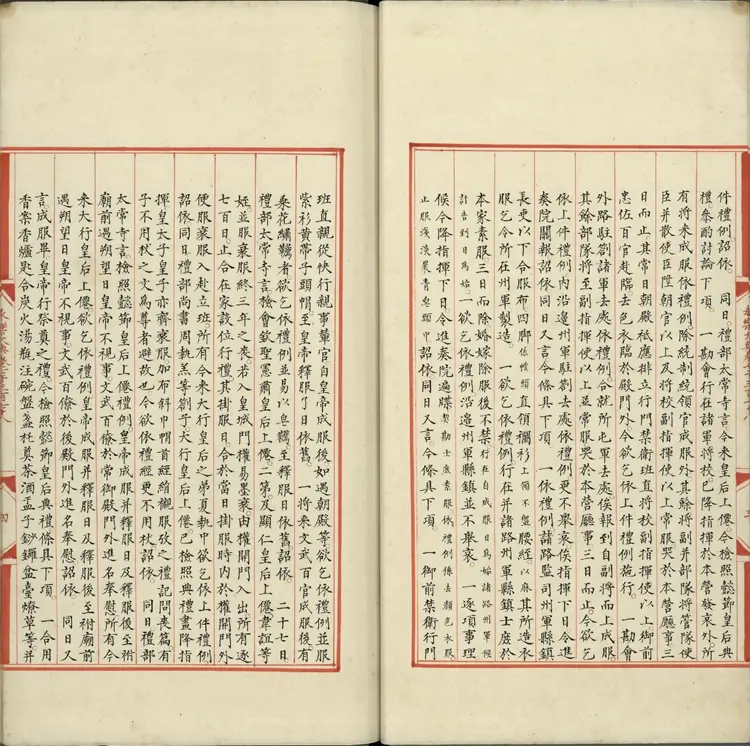 件禮例詔依。　同日禮部太常寺言今來皇后上僊今檢照懿節皇后典
禮參酌討論下項。　一勘會行在諸軍將校已降指揮於本營發哀外所
有將來成服依禮例除統制統領官成服外其餘將副并部隊將管隊使
臣并散使臣陞朝官以上及將校副指揮使以上常服哭於本營廳事三
日而止其常日朝殿祗應排立行門禁衛班直將校副指揮使以上御前
忠佐百官赴臨去色衣臨於殿門外今欲乞依上件禮例施行。　一勘會
外路駐劄諸軍去處依禮例合就所屯軍去處俟報到自副將而上成服
其餘部隊將至副指揮使以上並常服哭於本營廳事三日而止今欲乞
依上件禮例內沿邊州軍駐劄去處依禮例更不舉哀俟指揮下日令進
奏院關報詔依同日又言今條具下項　一依禮例諸路監司州軍縣鎮
長吏以下合服布四腳係幞頭直領襴衫上領不盤腰絰以麻其所造衣
服乞令所在州軍製造。　一欲乞依禮例行在并諸路州軍縣鎮士庶於
本家素服三日而除婚嫁除服後不禁行在自成服日為始諸路州軍候
訃告到日為始。一欲乞依禮例沿邊州軍縣鎮並不舉哀。　一逐項事理
候令降指揮下日令進奏院遍牒契勘士庶素服依禮例係去顏色衣服
止服淺淡栗青皂頭巾詔依同日又言今條具下項。　一御前禁衛行門
班直親從快行親事輦官自皇帝成服後如遇朝殿等欲乞依禮例並服
紫衫黃帶子頭帽至皇帝釋服了日依舊。　一將來文武百官成服後有
乘花繡韉者欲乞依禮例並易以皂韉至釋服日依舊詔依。　二十七日
禮部太常寺言檢會欽聖憲肅皇后上僊二第及顯仁皇后上僊韋誼等
姪並服衰服終三年之喪若入皇城門權易墨衰由權開門入出所有逐
七百日止合在家設位行禮其掛服日合於當日掛服時內於權開門外
便服衰服入赴立班所有今來大行皇后之弟夏執中欲乞依上件禮例
詔依同日禮部尚書周執羔等劄子大行皇后上僊已檢照典禮畫降指
揮皇太子皇子亦齊衰服加布斜巾帽首絰緒觀服攷之禮記問喪篇有
子不用杖之文為尊者避故也今欲依禮經更不用杖詔依　同日禮部
太常寺言檢照懿節皇后上僊禮例皇帝成服并釋服日及釋服後至祔
廟前遇朔望日皇帝不視事文武百僚於常御殿門外進名奉慰所有今
來大行皇后上僊欲乞依禮例皇帝成服并釋服日及釋服後至祔廟前
遇朔望日皇帝不視事文武百僚於後殿門外進名奉慰詔依　同日又
言成服畢皇帝行祭奠之禮今檢照懿節皇后典禮條具下項　一合用
香案香爐匙合炭火湯瓶注碗盤盞托奠茶酒盂子鈔鑼盆臺燎草等并